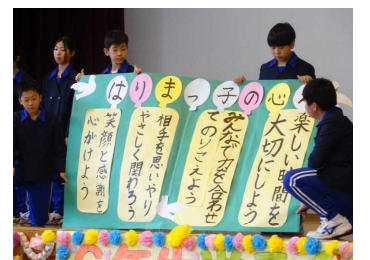 はりまっ子の心
楽しい時間を
大切にしよう
みんなで力を合わせ
てのりこえよう
相手を思いやり
やさしく関わろう
笑顔と感謝を
心がけよう